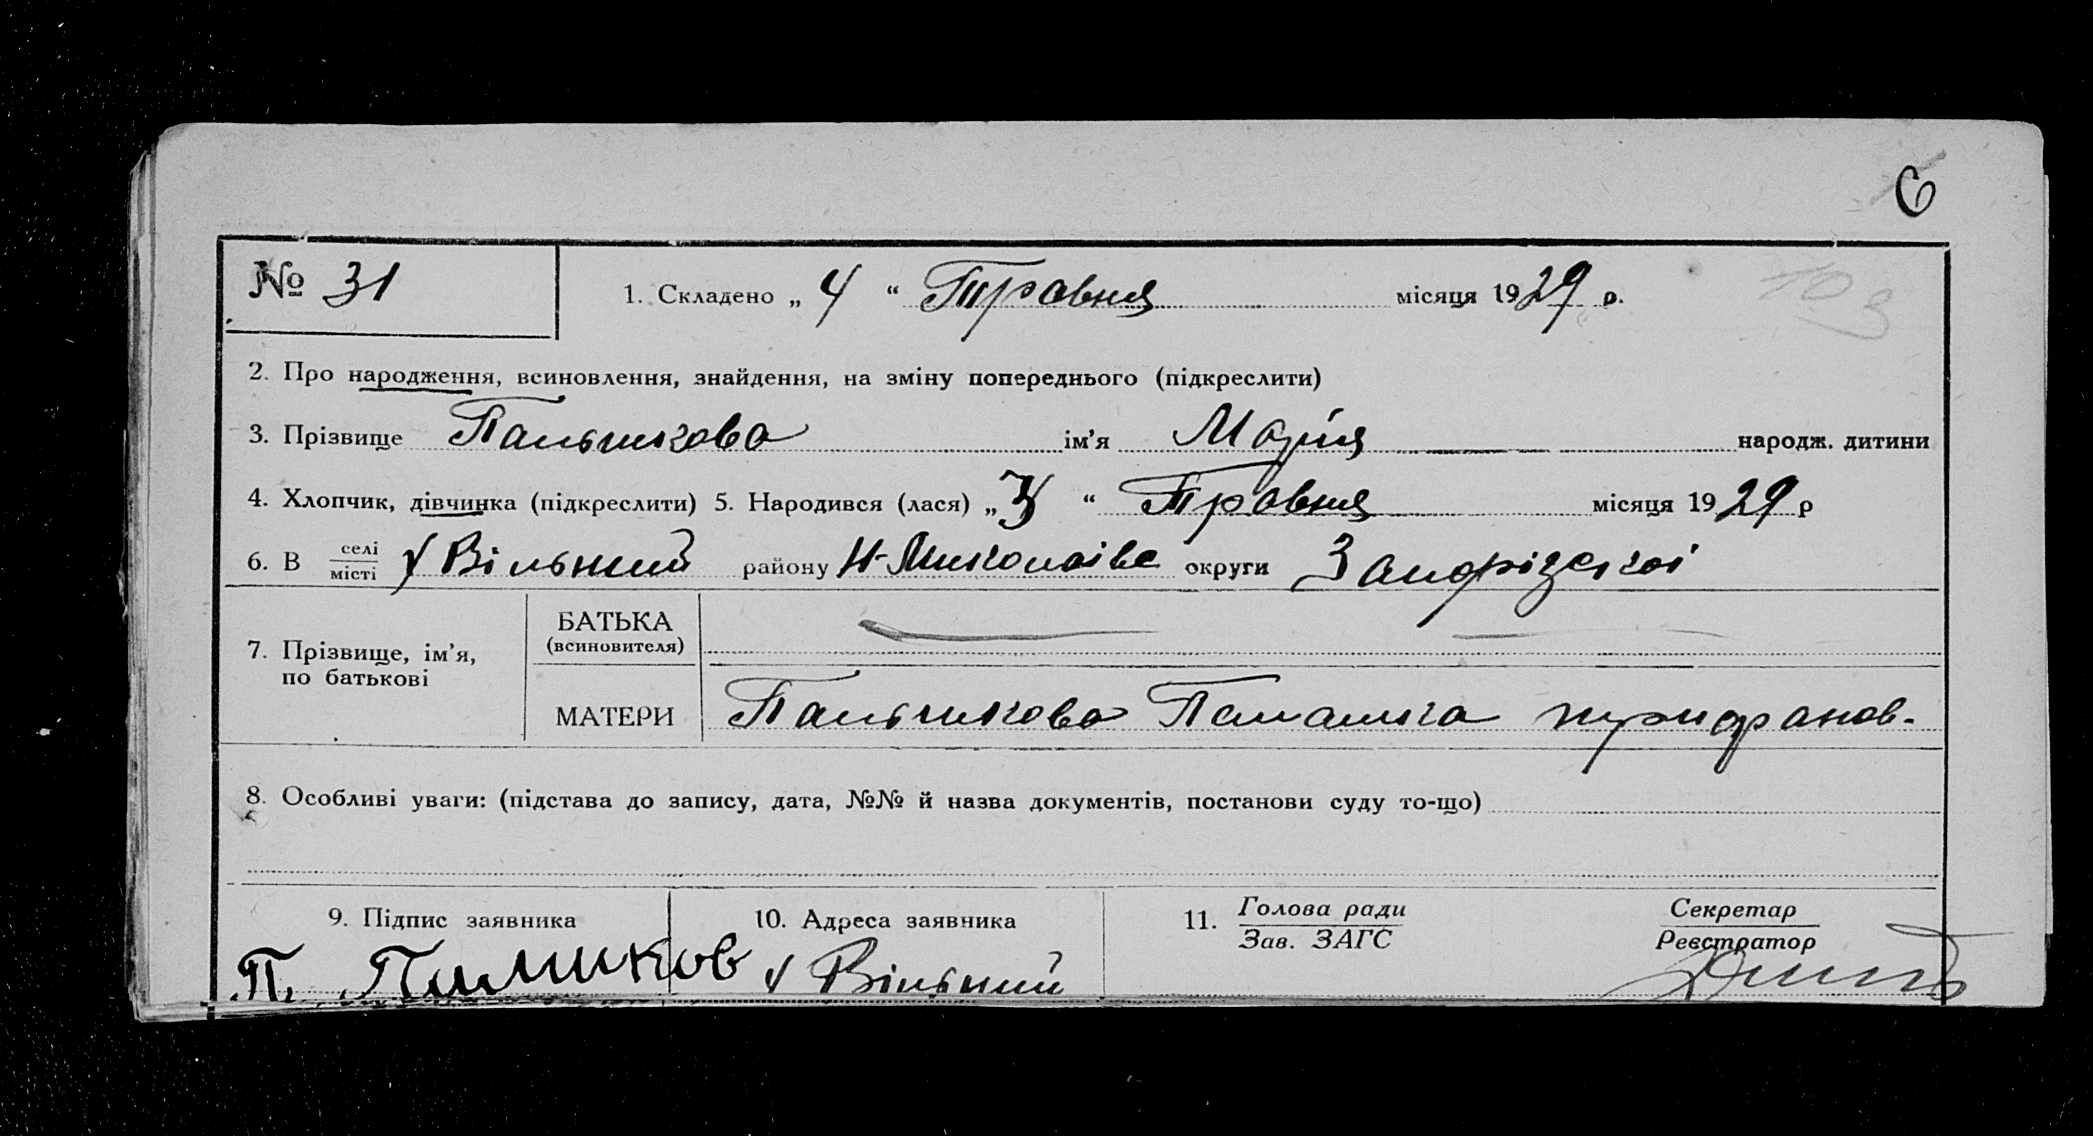 6
№ 31 1. Складено „ 4 “ Травня місяця 1929 р.
103
2. Про народження, всиновлення, знайдення, на зміну попереднього (підкреслити)
3. Прізвище Пальчикова ім’я Марія народж. дитини
4. Хлопчик, дівчинка (підкреслити) 5. Народився (лася) „ “ Травня місяця 1929 р
6. В селі місті х Вільний району Н-Миколаівс округи Запорізскоі
7. Прізвище, ім’я, по батькові
БАТЬКА (всиновителя)
МАТЕРИ Пальчикова
8. Особливі уваги: (підстава до запису, дата, №№ й назва документів, постанови суду то-що)
9. Підпис заявника 10. Адреса заявника 11. Голова ради Зав. ЗАГС Секретар Реєстратор
П. х Вільний